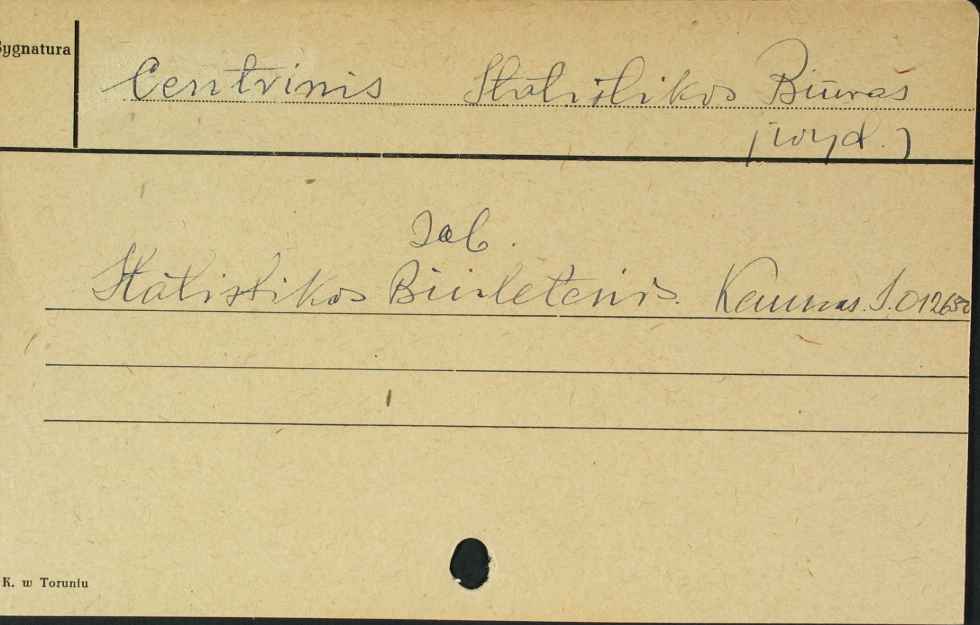 Sygnatura
Centrinis Statistikos Biuras
(wyd.)
zob.
Statistikos Biuletenis. Kaunas. S.012652
K. w Toruniu